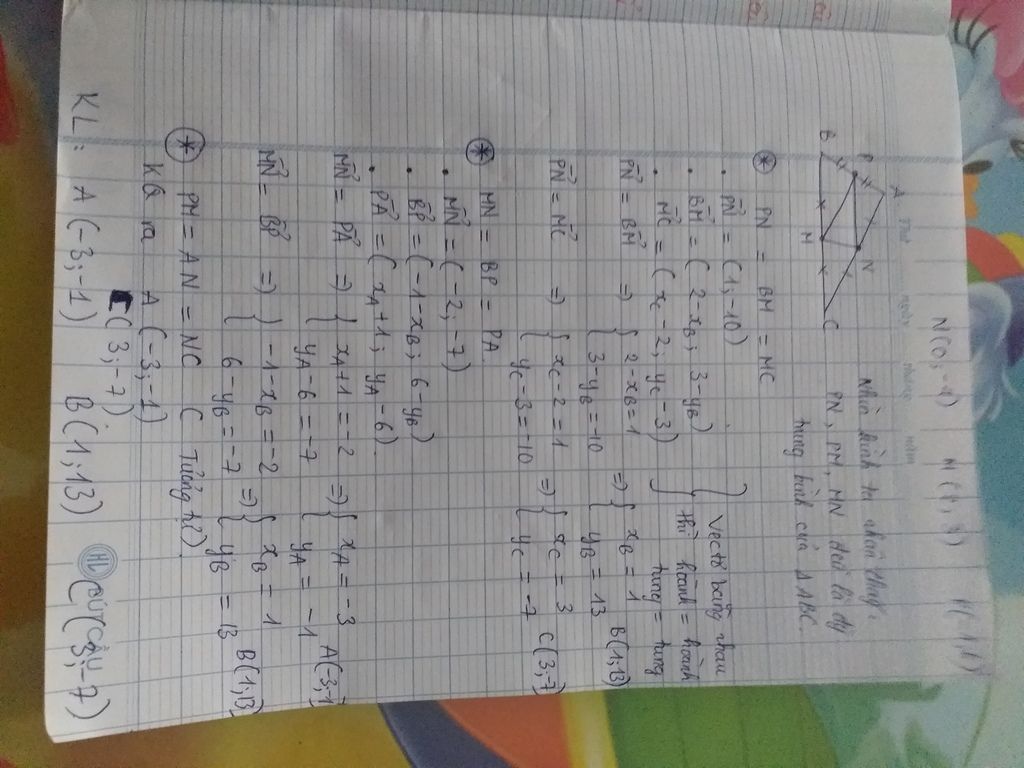 Thứ ngày tháng năm
N(0;-4) M(2;3) P(-1;6)
Nhìn hình ta nhận thấy:
PN, PM, MN đều là đg
trung bình của ΔABC.
A
P
N
B
M
C
* PN = BM = MC
. PN = (1;-10)
. BM = (2-xB; 3-yB)
. MC = (xC-2; yC-3)
Vectơ bằng nhau
thì hoành = hoành
tung = tung
PN = BM => { 2-xB=1 => { xB = 1
3-yB=-10 yB = 13 B(1;13)
PN = MC => { xC-2=1 => { xC = 3
yC-3=-10 yC = -7 C(3;-7)
* MN = BP = PA.
. MN = (-2;-7)
. BP = (-1-xB; 6-yB)
. PA = (xA+1; yA-6).
MN = PA => { xA+1=-2 => { xA = -3
yA-6=-7 yA = -1 A(-3;-1)
MN = BP => { -1-xB=-2 => { xB = 1
6-yB=-7 yB = 13 B(1;13)
* PM = AN = NC C Tương tự
KQ ra A(-3;-1)
C(3;-7)
KL: A(-3;-1) B(1;13) C(3;-7)